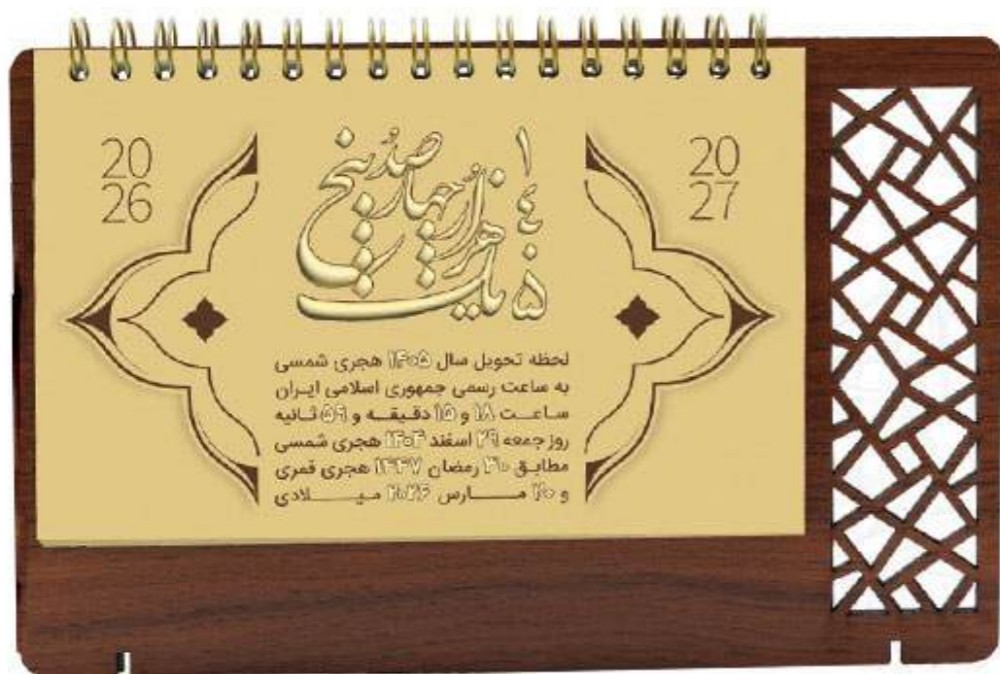 20
26
20
27
۱۴۰۵
یک هزار و چهار صد و پنج
لحظه تحویل سال ۱۴۰۵ هجری شمسی
به ساعت رسمی جمهوری اسلامی ایران
ساعت ۱۸ و ۱۵ دقیقه و ۵۹ ثانیه
روز جمعه ۲۹ اسفند ۱۴۰۴ هجری شمسی
مطابق ۳۰ رمضان ۱۴۴۷ هجری قمری
و ۲۰ مارس ۲۰۲۶ میلادی